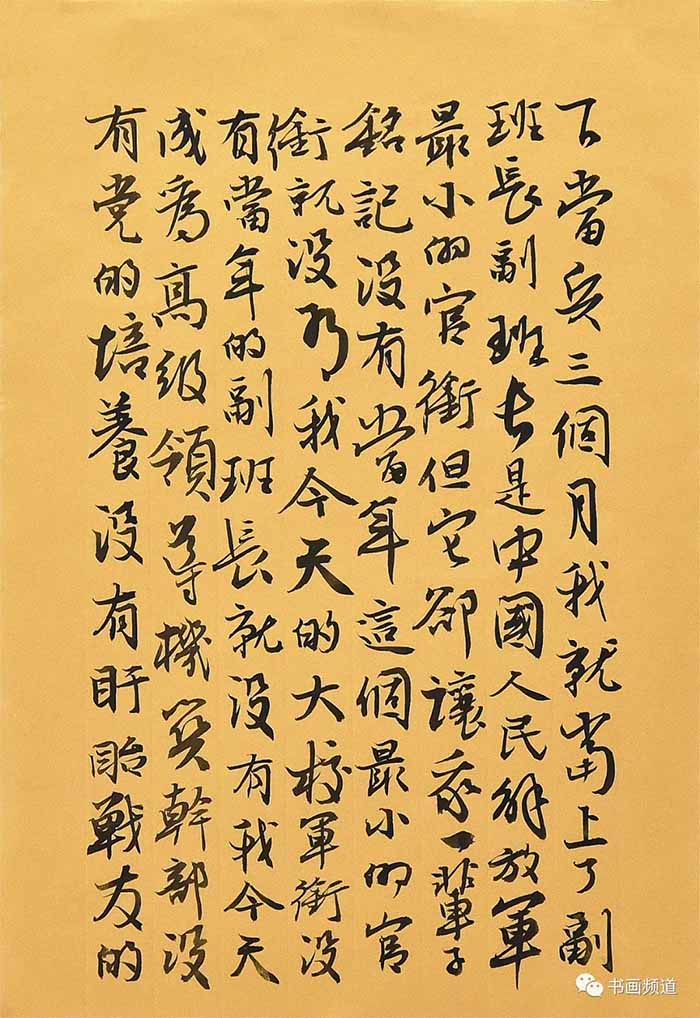 下當兵三個月我就當上了副
班長副班长是中國人民解放軍
最小的官銜但它卻讓我一輩子
銘記没有當年這個最小的官
銜就没有我今天的大校軍銜没
有當年的副班長就没有我今天
成爲高級領導機関幹部没
有党的培養没有盱眙戰友的
书画频道